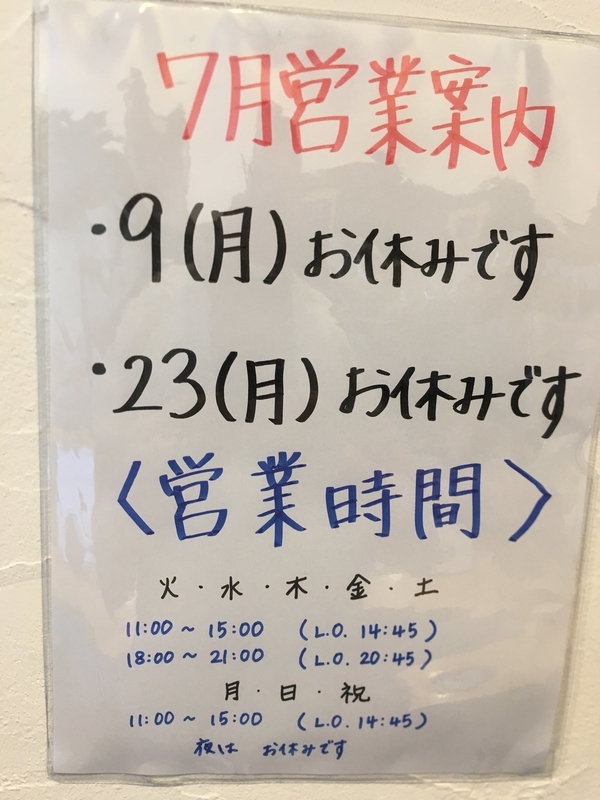 7月営業案内
・9(月)お休みです
・23(月)お休みです
〈営業時間〉
火・水・木・金・土
11:00～15:00 (L.O. 14:45)
18:00～21:00 (L.O. 20:45)
月・日・祝
11:00～15:00 (L.O. 14:45)
夜は お休みです